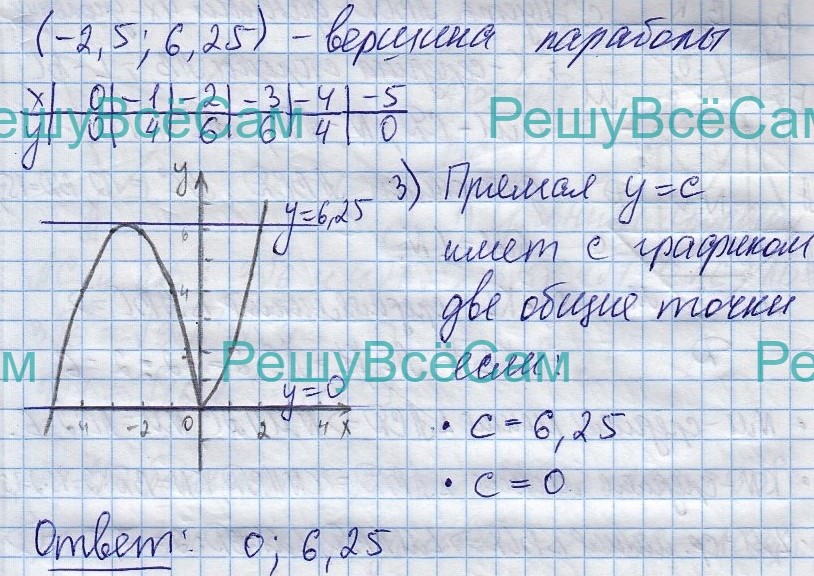 (-2,5; 6,25) - вершина параболы
x | 0 | -1 | -2 | -3 | -4 | -5
y | 0 | 4 | 6 | 6 | 4 | 0
РешуВсёСам
РешуВсёСам
y
y=6,25
6
4
2
y=0
-4 -2 0 2 4 x
3) Прямая y=c
имет с графиком
две общие точки
если:
• c = 6,25
• c = 0
РешуВсёСам
Ответ: 0; 6,25